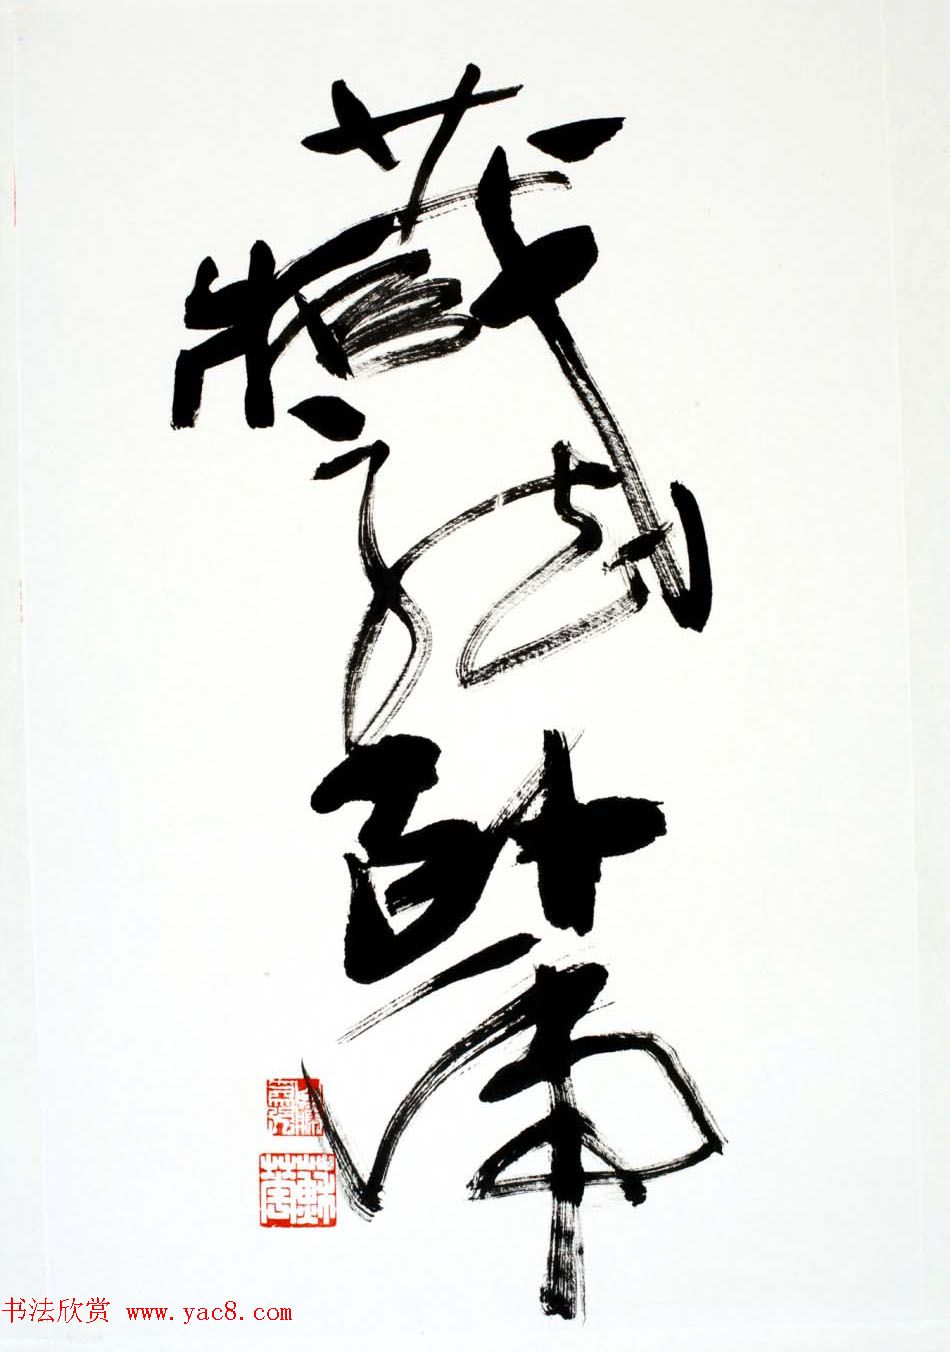 藏龍卧虎
书法欣赏 www.yac8.com